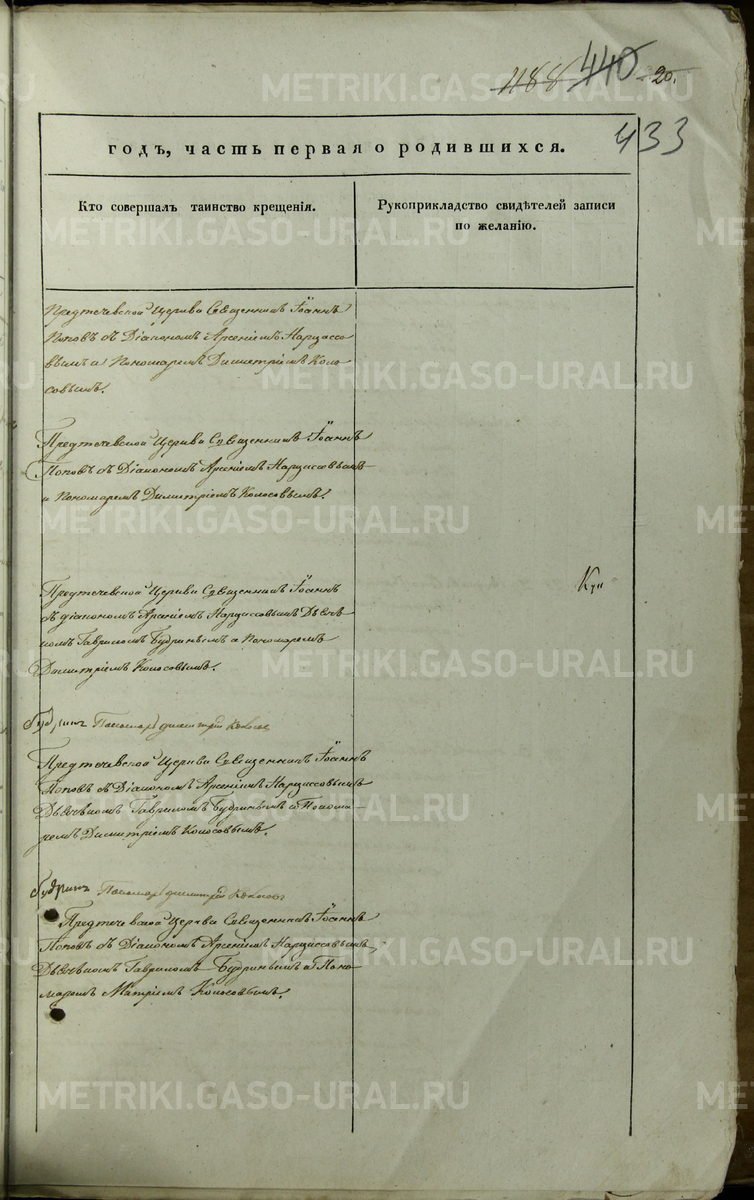 1188 440 20.
433
годъ, часть первая о родившихся.
Кто совершалъ таинство крещенія.
Рукоприкладство свидѣтелей записи
по желанію.
Предтечевской Церкви Священникъ Іоаннъ
Поповъ съ Діакономъ Арсеніемъ Нарциссо-
вымъ и Пономаремъ Димитріемъ Коло-
совымъ.
Предтечевской Церкви Священникъ Іоаннъ
Поповъ съ Діакономъ Арсеніемъ Нарциссовымъ
и Пономаремъ Димитріемъ Колосовымъ.
Предтечевской Церкви Священникъ Іоаннъ
съ діакономъ Арсеніемъ Нарциссовымъ Дьяч-
комъ Гавриломъ Будринымъ и Пономаремъ
Димитріемъ Колосовымъ.
Кун
Будринъ Пономарь димитрій Колосов
Предтечевской Церкви Священникъ Іоаннъ
Поповъ съ Діакономъ Арсеніемъ Нарциссовымъ
Дьячкомъ Гавриломъ Будринымъ и Понома-
ремъ Димитріемъ Колосовымъ.
Будринъ Пономарь димитрій Колосов
Предтечевской Церкви Священникъ Іоаннъ
Поповъ съ Діакономъ Арсеніемъ Нарциссовымъ
Дьячкомъ Гавриломъ Будринымъ и Поно-
маремъ Колосовымъ.
METRIKI.GASO-URAL.RU